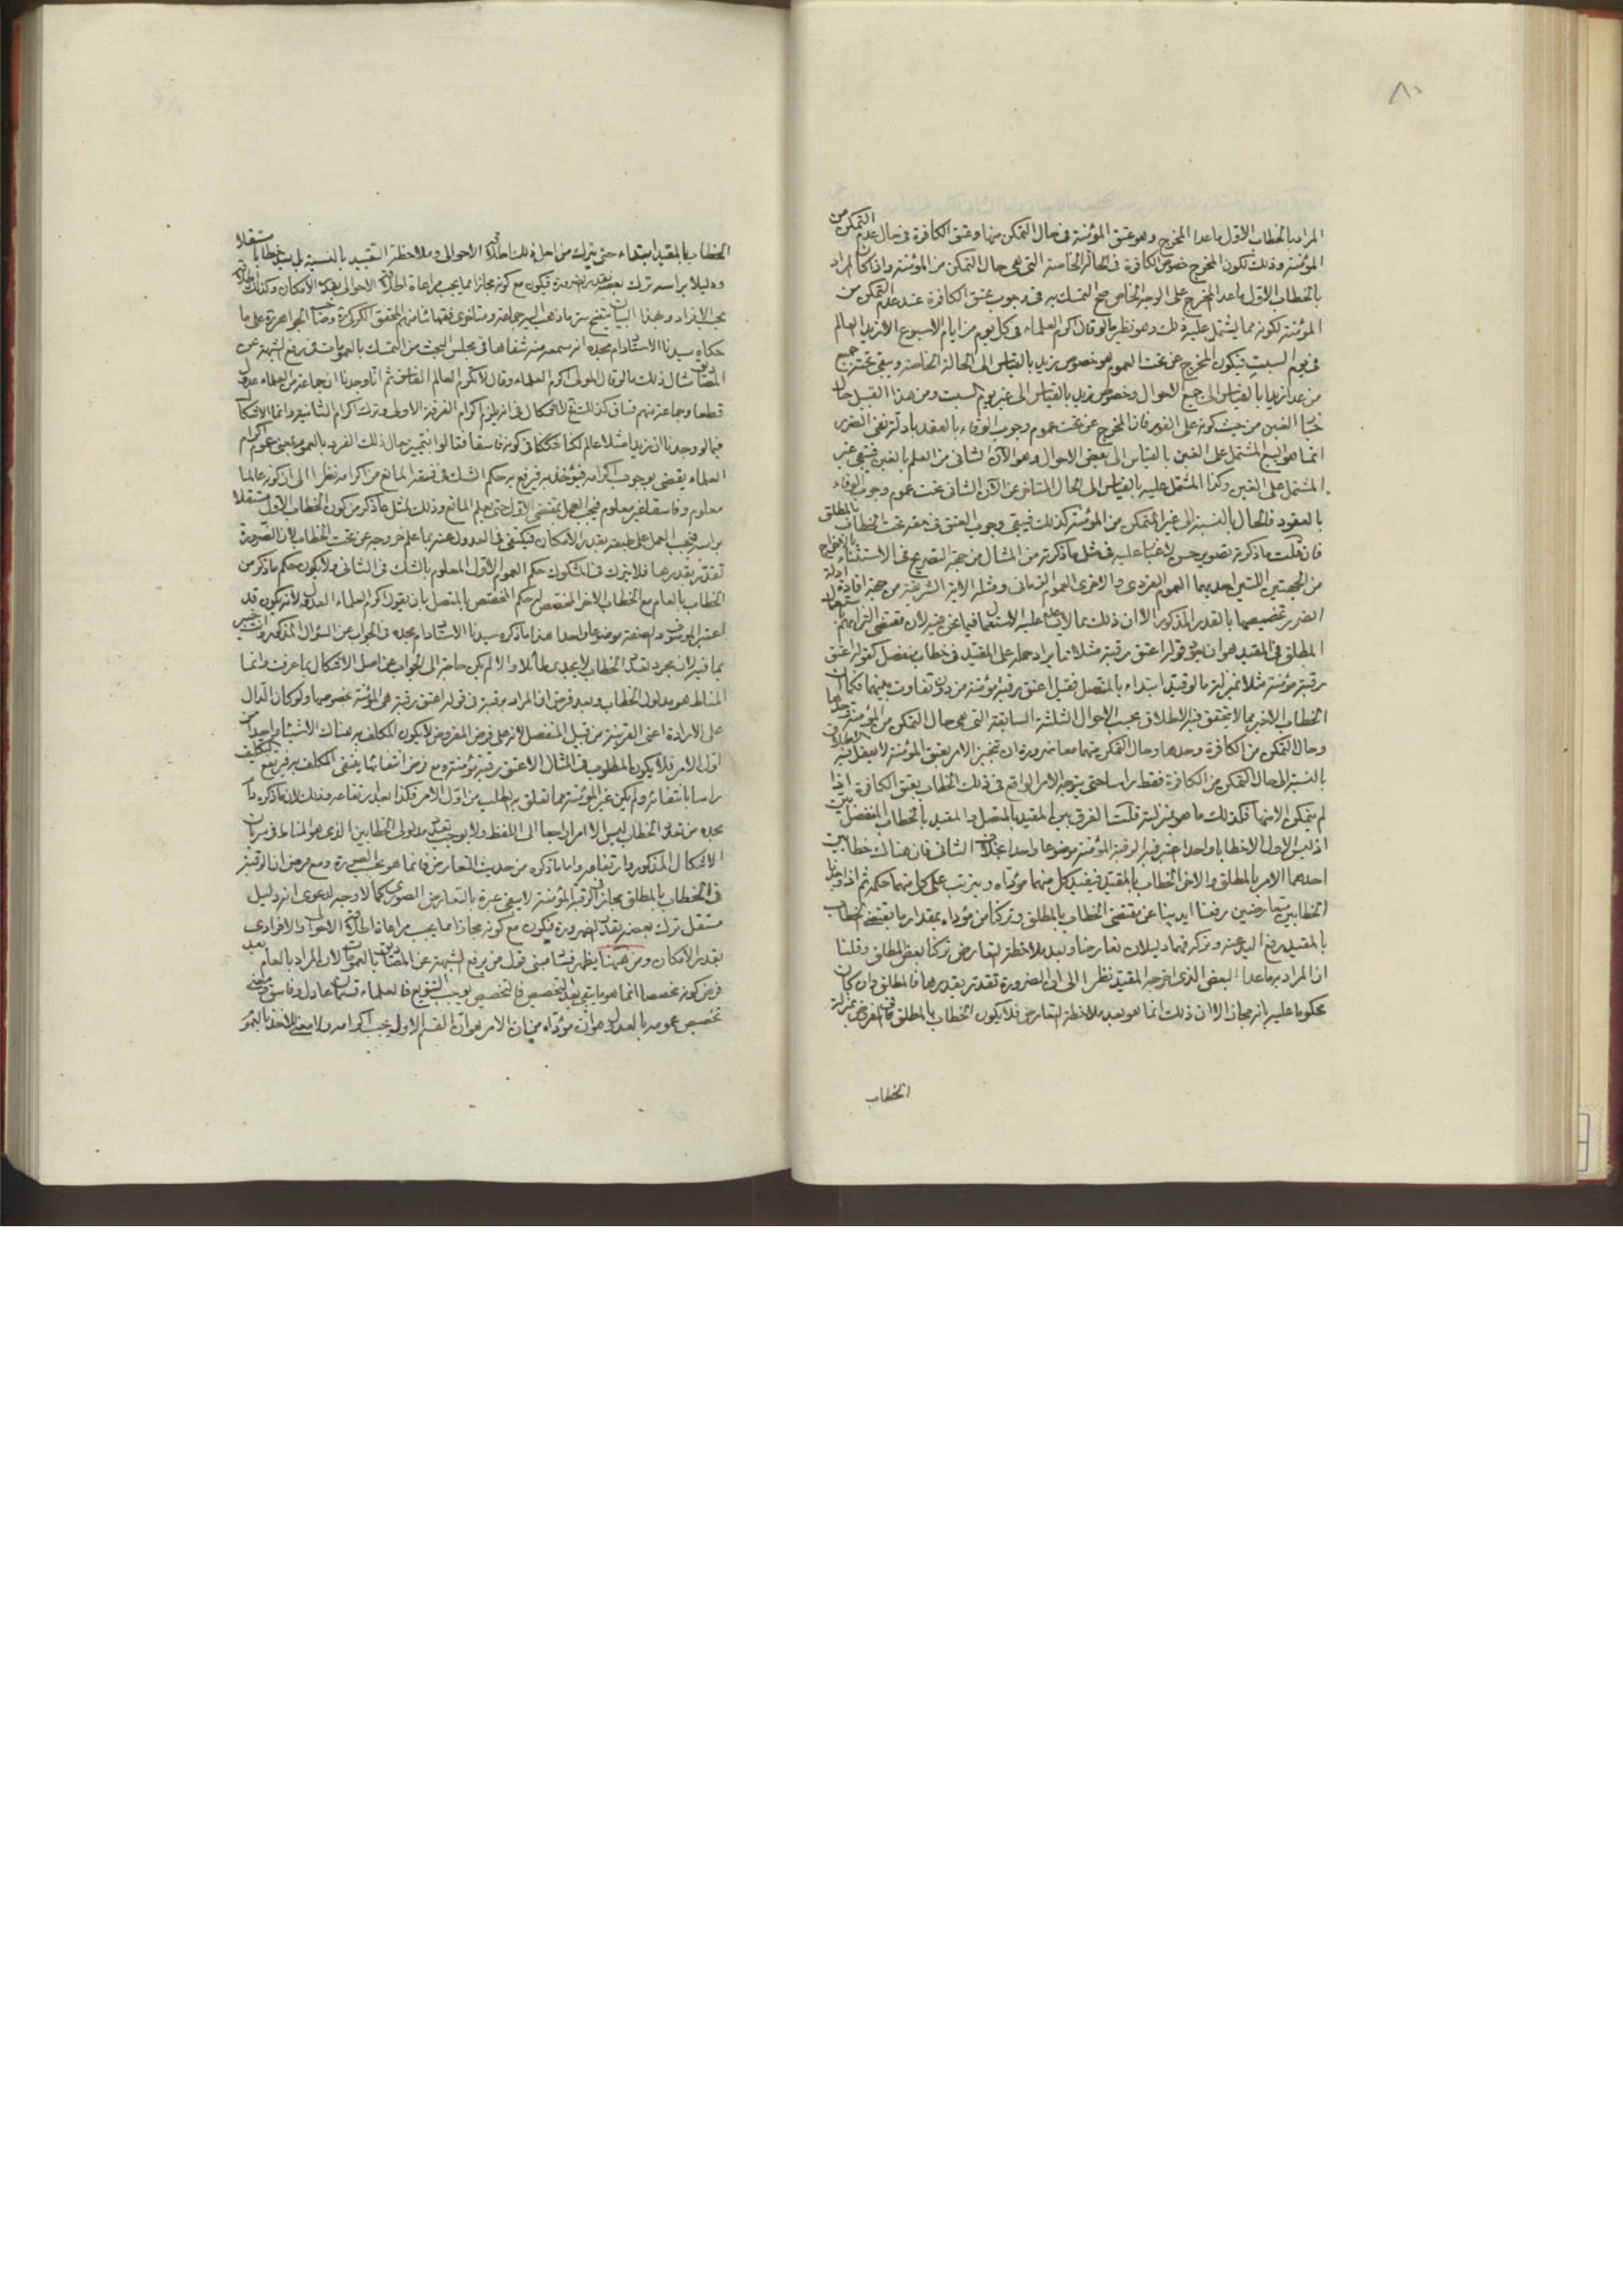 ٨٠
المراد بالخطاب الاول ما عدا المخرج وهو عتق المؤمنة فى حال التمكن منها وعتق الكافرة فى حال عدم التمكن من
المؤمنة وذلك لكون المخرج خصوص الكافرة فى الحالة الخاصة التى هى حال التمكن من المؤمنة واذا كان المراد
بالخطاب الاول ما عدا المخرج على الوجه الخاص صح التمسك به فى وجوب عتق الكافرة عند عدم التمكن من
المؤمنة لكونه مما يشتمل عليه ذلك وهو نظير ما لو قال اكرم العلماء فى كل يوم من ايام الاسبوع الا زيد العالم
فى يوم السبت فيكون المخرج عن تحت العموم هو خصوص زيد بالقياس الى الحالة الخاصة ويبقى تحته جميع
من عدا زيد بالقياس الى جميع الاحوال وخصوص زيد بالقياس الى غير يوم السبت ومن هذا القبيل حال
خيار الغبن من حيث كونه على الفور فان المخرج عن تحت عموم وجوب الوفاء بالعقد بادلة نفى الضرر
انما هو البيع المشتمل على الغبن بالقياس الى بعض الاحوال وهو الآن الثانى من العلم بالغبن فيبقى غير
المشتمل على الغبن وكذا المشتمل عليه بالقياس الى الحال المتاخر عن الآن الثانى تحت عموم وجوب الوفاء
بالعقود فالحال بالنسبة الى غير المتمكن من المؤمنة كذلك فيبقى وجوب العتق فى حقه تحت الخطاب بالمطلق
فان قلت ما ذكرته تصوير حسن لا غبار عليه فى مثل ما ذكرته من المثال من جهة التصريح فى الاستثناء بالاخراج
من الجهتين اللتين احديهما العموم الفردى والاخرى العموم الزمانى ومثله الاية الشريفة من جهة افادة ادلة
الضرر تخصيصها بالقدر المذكور الا ان ذلك مما لا يساعد عليه الاستعمال فيما نحن فيه لان مقتضى التزامهم باستعمال
المطلق فى المقيد هو ان يكون قوله اعتق رقبة مثلا مما يراد حمله على المقيد فى خطاب منفصل كقوله اعتق
رقبة مؤمنة مثلا بمنزلة ما لو قيد ابتداء بالمتصل فقيل اعتق رقبة مؤمنة من دون تفاوت بينهما فكما ان
الخطاب الاخير مما لا يتحقق فيه الاطلاق بحسب الاحوال الثلثة السابقة التى هى حال التمكن من المؤمنة وحدها
وحال التمكن من الكافرة وحدها وحال التمكن منهما معا ضرورة ان تنجيز الامر بعتق المؤمنة لا يعقل فيه الاطلاق
بالنسبة الى حال التمكن من الكافرة فقط راسا حتى يتوجه الامر الواقع فى ذلك الخطاب بعتق الكافرة اذا
لم يتمكن الا منها فكذلك ما هو بمنزلته قلت الفرق بين المقيد بالمتصل والمقيد بالخطاب المنفصل بين
اذ ليس الاول الا خطابا واحدا اعتبر فيه الرقبة المؤمنة موضوعا واحدا بخلاف الثانى فان هناك خطابين
احدهما الامر بالمطلق والاخر الخطاب بالمقيد فيفيد كل منهما مؤداه ويترتب على كل منهما حكمه ثم اذا وجدنا
الخطابين متعارضين رفعنا ايدينا عن مقتضى الخطاب بالمطلق وتركنا من مؤداه بمقدار ما يقتضى الخطاب
بالمقيد رفع اليد عنه وتركه فهما دليلان تعارضا وبعد ملاحظة التعارض تركنا بعض المطلق وقلنا
ان المراد به ما عدا البعض الذى اخرجه المقيد نظرا الى ان الضرورة تقدر بقدرها فالمطلق وان كان
محكوما عليه بانه مجاز الا ان ذلك انما هو بعد ملاحظة التعارض فلا يكون الخطاب بالمطلق فى المفروض بمنزلة
الخطاب
الخطاب بالمقيد ابتداء حتى يترك من اجل ذلك اطلاق الاحوالى وملاحظة التقييد بالنسبة اليه بل يعد خطابا مستقلا
ودليلا براسه ترك بعضه بقدر الضرورة فيكون مع كونه مجازا مما يجب مراعاة اطلاقه الاحوالى بقدر الامكان وكذلك اطلاقه
بحسب الافراد وبهذا البيان يتضح سر ما ذهب اليه جماعة من متاخرى فقهائنا منهم المحقق الكركى وصاحب الجواهر على ما
حكاه سيدنا الاستاد دام مجده انه سمعه منه شفاها فى مجلس البحث من التمسك بالعمومات فى رفع الشبهة عن
المصاديق مثال ذلك ما لو قال المولى اكرم العلماء وقال لا تكرم العالم الفاسق ثم انا وجدنا ان جماعة من العلماء عدول
قطعا وجماعة منهم فساق كذلك فلا اشكال فى انه يلزم اكرام الفرقة الاولى وترك اكرام الثانية وانما الاشكال
فيما لو وجدنا ان زيدا مثلا عالم لكنا شككنا فى كونه فاسقا فقالوا بتمييز حال ذلك الفرد بالعموم بمعنى ان عموم اكرم
العلماء يقضى بوجوب اكرامه فيؤخذ به فيرفع به حكم الشك فى فسقه المانع من اكرامه نظرا الى ان كونه عالما
معلوم وفاسقا غير معلوم فيجب العمل بمقتضى الاول حتى يعلم المانع وذلك لمثل ما ذكر من كون الخطاب الاول مستقلا
براسه فيجب العمل على طبقه بقدر الامكان فيكتفى فى العدول عنه بما علم خروجه عن تحت الخطاب لان الضرورة
تقدر بقدرها فلا يترك فى المشكوك حكم العموم الاول المعلوم بالشك فى الثانى ولا يكون حكم ما ذكر من
الخطاب بالعام مع الخطاب الاخر المخصص له حكم المخصص بالمتصل بان يقول اكرم العلماء العدول لانه يكون قد
اعتبر الموصوف والصفة موضوعا واحدا هذا ما ذكره سيدنا الاستاد دام مجده فى الجواب عن السؤال المذكور وانت خبير
بما فيه لان مجرد تعدد الخطاب لا يجدى طائلا والا لم يكن حاجة الى الجواب عن اصل الاشكال بما عرفت وانما
المناط هو مدلول الخطاب وبعد فرض ان المراد برقبة فى قوله اعتق رقبة هى المؤمنة بخصوصها ولو كان الدال
على الارادة اعنى القرينة من قبيل المنفصل لانه على فرض المفروض لا يكون المكلف به هناك الا شيئا واحدا من
اول الامر فلا يكون المطلوب فى المثال الا عتق رقبة مؤمنة ومع فرض انتفائها ينتفى المكلف به فيرتفع التكليف
راسا بانتفائه ولم يكن غير المؤمنة مما تعلق به الطلب من اول الامر فكذا بعد ارتفاعه وذلك لان ما ذكره دام
مجده من تعدد الخطاب ليس الا امرا راجعا الى اللفظ ولا يوجب تعدد مدلولى الخطابين الذى هو المناط فى سريان
الاشكال المذكور وارتفاعه واما ما ذكره من حديث التعارض فانما هو بحسب الصورة ومع فرض ان الرقبة
فى الخطاب بالمطلق مجاز فى الرقبة المؤمنة لا يبقى عبرة بالتعارض الصورى كما لا وجه لدعوى انه دليل
مستقل ترك بعضه بقدر الضرورة فيكون مع كونه مجازا مما يجب مراعاة اطلاقه الاحوالى والافرادى
بقدر الامكان ومن ههنا يظهر فساد مبنى قول من يرفع الشبهة عن المصاديق بالعمومات لان المراد بالعام بعد
فرض كونه مخصصا انما هو ما يبقى بعد التخصيص فالتخصيص يوجب التنويع فالعلماء قسمان عادل وفاسق ومعنى
تخصيص عمومه بالعدول هو ان مؤداه بيان الامر بهو ان القسم الاول يجب اكرامه ولا معنى للاخذ بالعموم